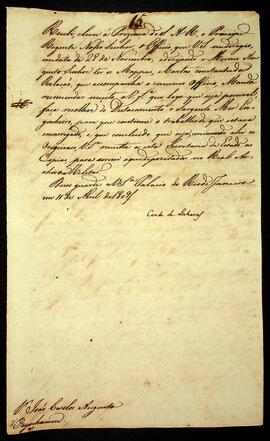 Recebi, e levei á Presença de S. A. R. o Principe
Regente Nosso Senhor, o Officio que V. S. me dirigio,
em data de 29 de Novembro, e dirigindo o Mesmo
Augusto Senhor os Mappas, e Cartas constantes da
Relação, que acompanhou o mesmo Officio, Manda
recommendar a V. S. que logo que seja possivel,
faça recolher do Destacamento o Sargento Mór
para que continue o trabalho de que estava
encarregado e que concluido que seja
Originaes V. S. remetta a esta Secretaria de Estado as
Copias para serem aqui depositadas no Real
Archivo Militar.
Deos guarde a V. S. Palacio do Rio de Janeiro
em 11 de Abril de 1809
Conde de Linhares
Sr. João Carlos Augusto
d'Oeynhausen